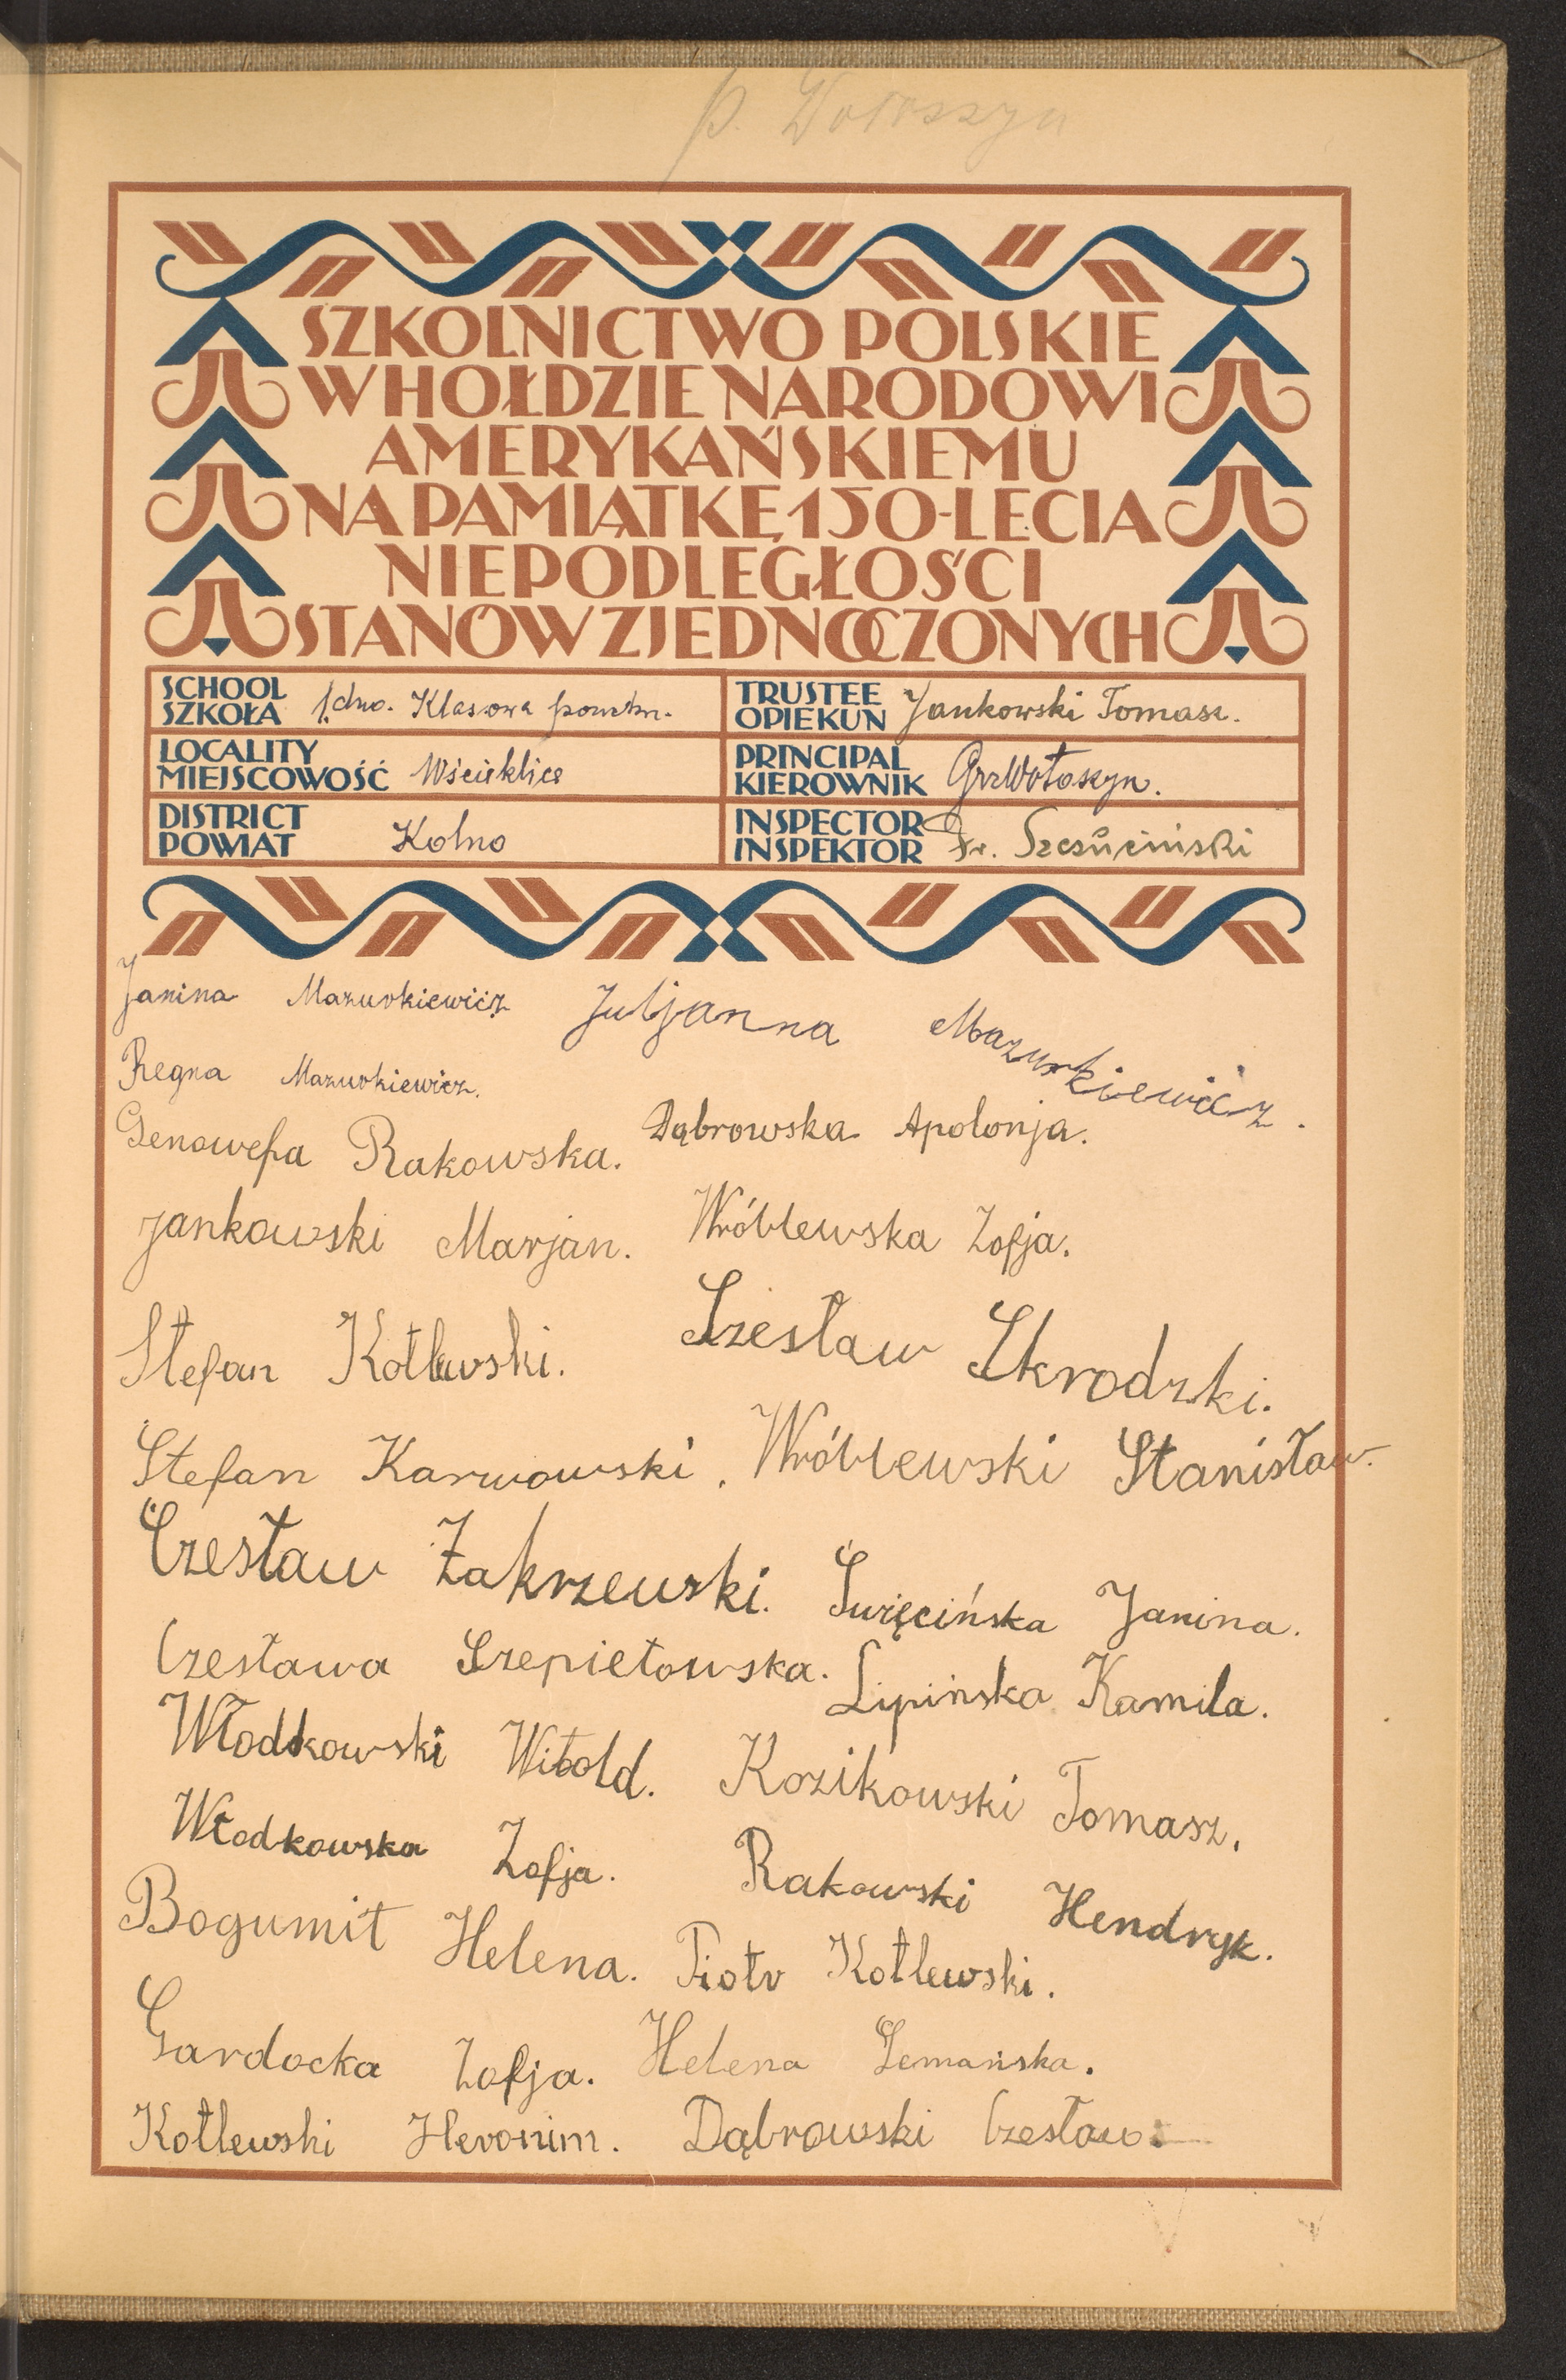 P. Wołoszyn
SZKOLNICTWO POLSKIE
W HOŁDZIE NARODOWI
AMERYKAŃSKIEMU
NA PAMIĄTKĘ 150-LECIA
NIEPODLEGŁOŚCI
STANÓW ZJEDNOCZONYCH
SCHOOL
SZKOŁA 1.dno. Klasowa
TRUSTEE
OPIEKUN Jankowski Tomasz.
LOCALITY
MIEJSCOWOŚĆ Wścieklice
PRINCIPAL
KIEROWNIK GrzWołoszyn.
DISTRICT
POWIAT Kolno
INSPECTOR
INSPEKTOR Fr.
Janina Mazurkiewicz Juljanna Mazurkiewicz.
Regna Mazurkiewicz.
Genowefa Rakowska. Dąbrowska Apolonja.
Jankowski Marjan. Wróblewska Zofja.
Stefan Kotlewski. Szesław Skrodzki.
Stefan Karwowski. Wróblewski Stanisław.
Czesław Zakrzewski. Święcińska Janina.
Czesława Szepietowska. Lipińska Kamila.
Włodkowski Witold. Kozikowski Tomasz.
Włodkowska Zofja. Rakowski Hendryk.
Bogumił Helena. Piotr Kotlewski.
Gardocka Zofja. Helena Zemańska.
Kotlewski Heronim. Dąbrowski Czesław.